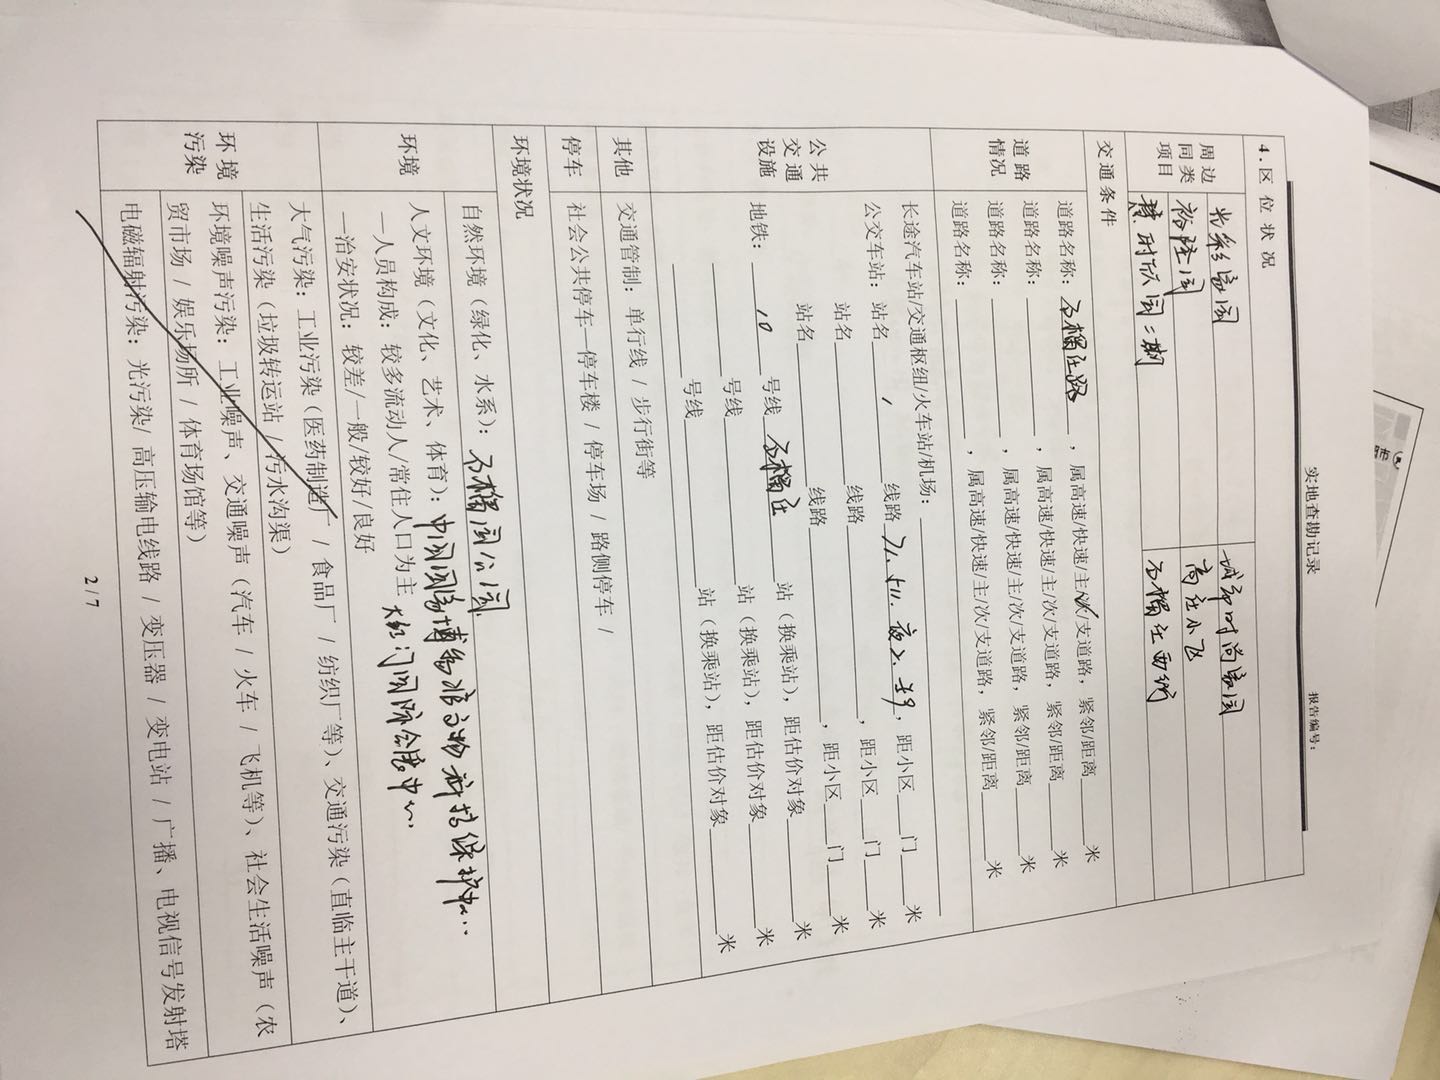 实地查勘记录
报告编号：
4.区 位 状 况
周边同类项目
光彩家园
城市时尚家园
裕隆园
高庄小区
慧时欣园二期
石榴庄西街
交通条件
道路情况
道路名称：石榴庄路，属高速/快速/主/次/支道路，紧邻/距离____米
道路名称：____，属高速/快速/主/次/支道路，紧邻/距离____米
道路名称：____，属高速/快速/主/次/支道路，紧邻/距离____米
道路名称：____，属高速/快速/主/次/支道路，紧邻/距离____米
公共交通设施
长途汽车站/交通枢纽/火车站/机场：____
公交车站：站名____线路____，距小区____门____米
站名____线路____，距小区____门____米
站名____线路____，距小区____门____米
地铁：10号线石榴庄站（换乘站），距估价对象____米
____号线____站（换乘站），距估价对象____米
____号线____站（换乘站），距估价对象____米
其他
交通管制：单行线 / 步行街等
停车
社会公共停车—停车楼 / 停车场 / 路侧停车 /
环境状况
环境
自然环境（绿化、水系）：石榴园公园
人文环境（文化、艺术、体育）：中国园林博物馆文物科技保护中心
—人员构成：较多流动人/常住人口为主 大红门国际会展中心
—治安状况：较差/一般/较好/良好
环境污染
大气污染：工业污染（医药制造厂 / 食品厂 / 纺织厂等）、交通污染（直临主干道）、
生活污染（垃圾转运站 / 污水沟渠）
环境噪声污染：工业噪声、交通噪声（汽车 / 火车 / 飞机等）、社会生活噪声（农
贸市场 / 娱乐场所 / 体育场馆等）
电磁辐射污染：光污染/ 高压输电线路 / 变压器 / 变电站 / 广播、电视信号发射塔
2 / 7